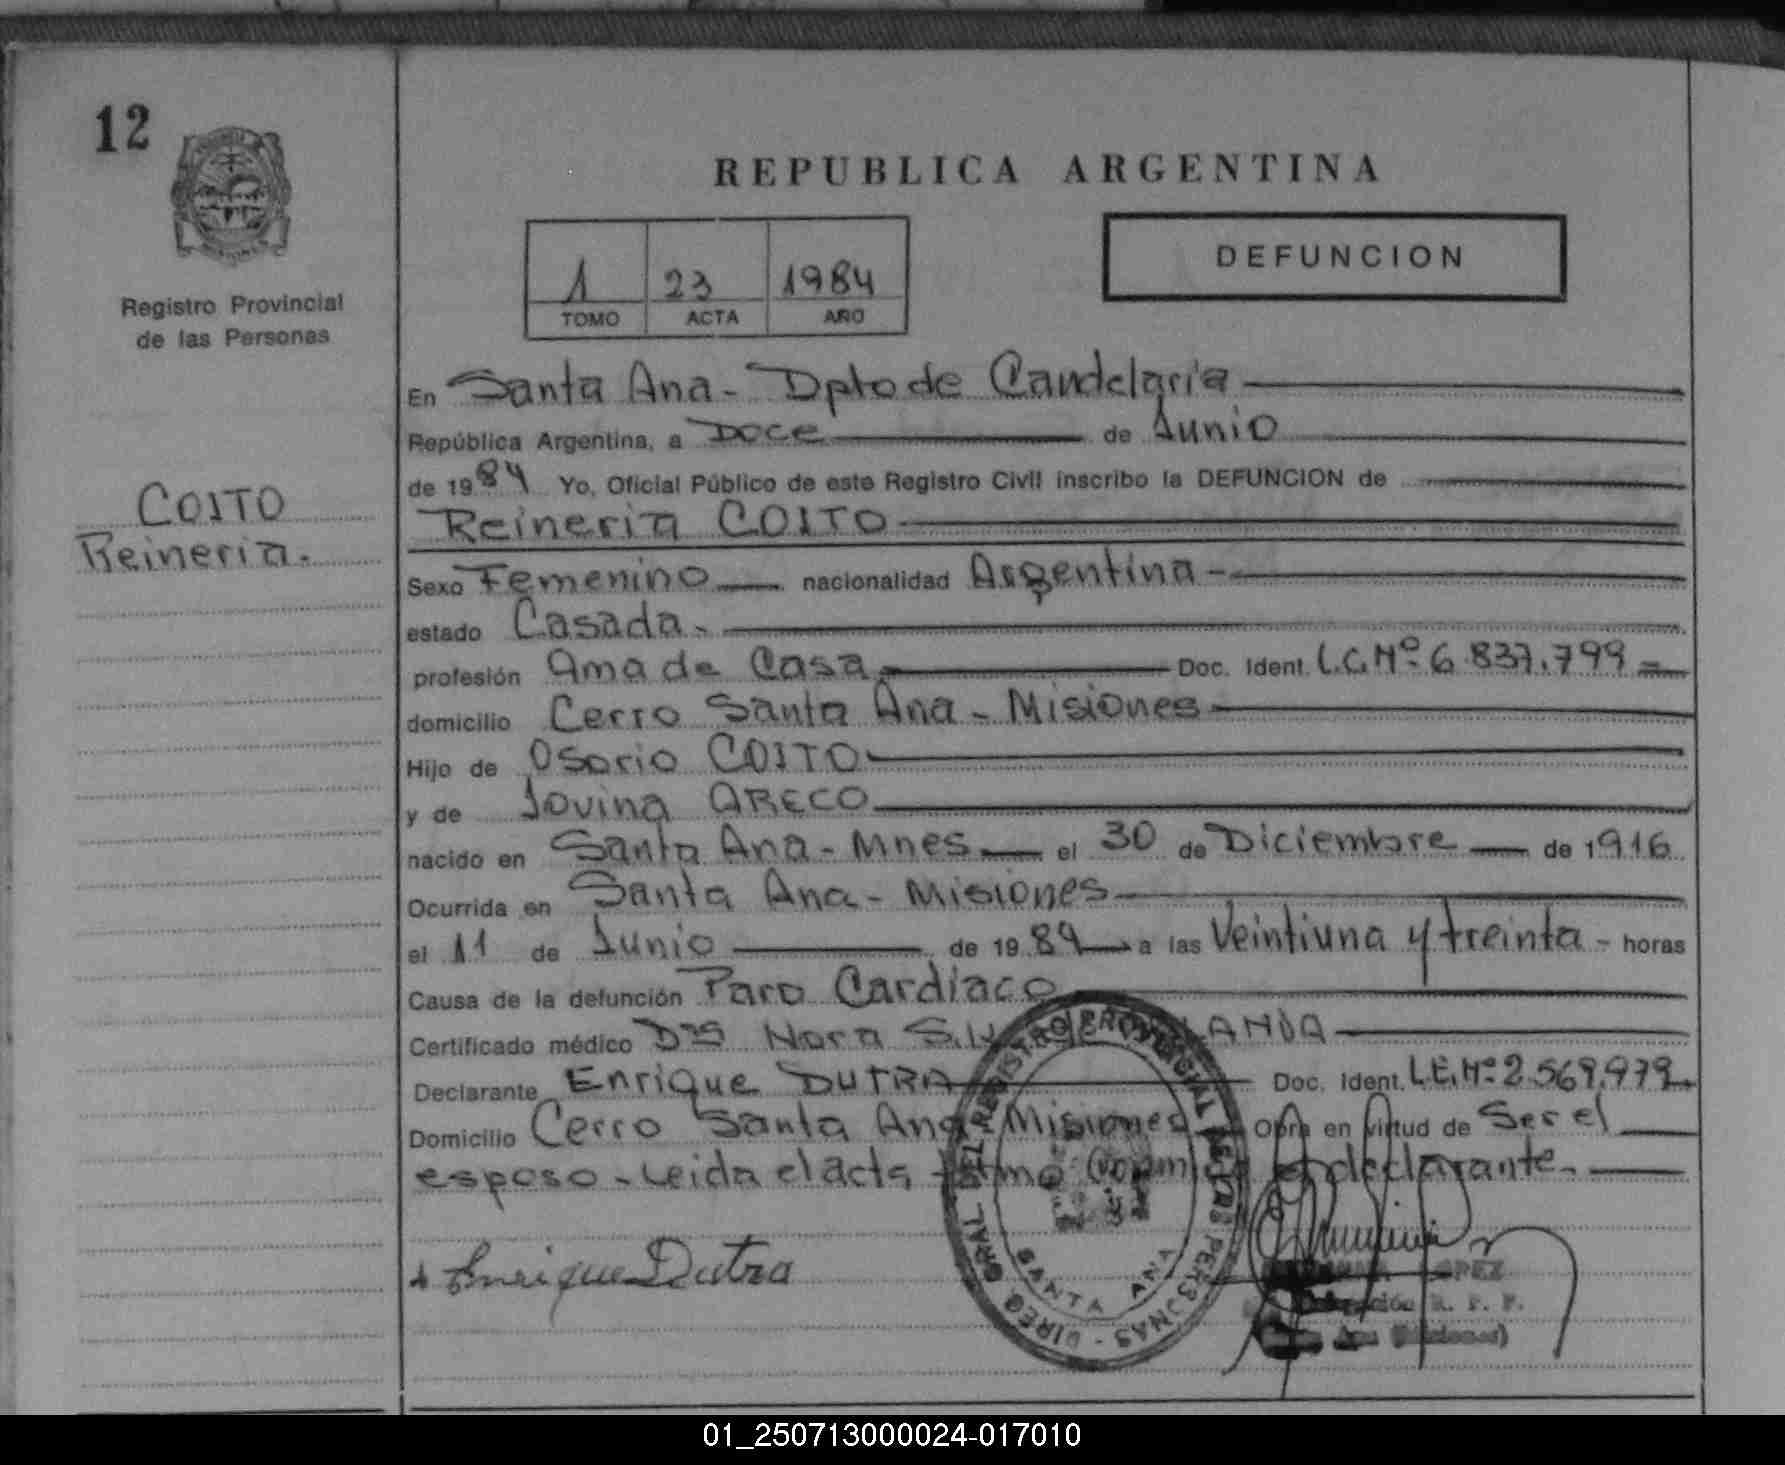 12
Registro Provincial
de las Personas
COITO
Reineria.
REPUBLICA ARGENTINA
1 23 1984
TOMO ACTA AÑO
DEFUNCION
En Santa Ana - Dpto de Candelaria
República Argentina, a Doce de Junio
de 1984 Yo, Oficial Público de este Registro Civil inscribo la DEFUNCION de
Reineria COITO
Sexo Femenino nacionalidad Argentina -
estado Casada -
profesión Ama de Casa Doc. Ident. L.C. Nº 6.837.799 =
domicilio Cerro Santa Ana - Misiones
Hijo de Osorio COITO
y de Jovina ARECO
nacido en Santa Ana - Mnes el 30 de Diciembre de 1916
Ocurrida en Santa Ana - Misiones
el 11 de Junio de 1984 a las Veintiuna y treinta - horas
Causa de la defunción Paro Cardiaco
Certificado médico Dra Nora
Declarante Enrique DUTRA Doc. Ident. L.E. Nº 2.569.979.
Domicilio Cerro Santa Ana Misiones Obra en virtud de Ser el
esposo - Leida el acta declarante.
Enrique Dutra
DIREC. GRAL. DEL REGISTRO PROVINCIAL DE LAS PERSONAS -
SANTA ANA
R. P. P.
01_250713000024-017010